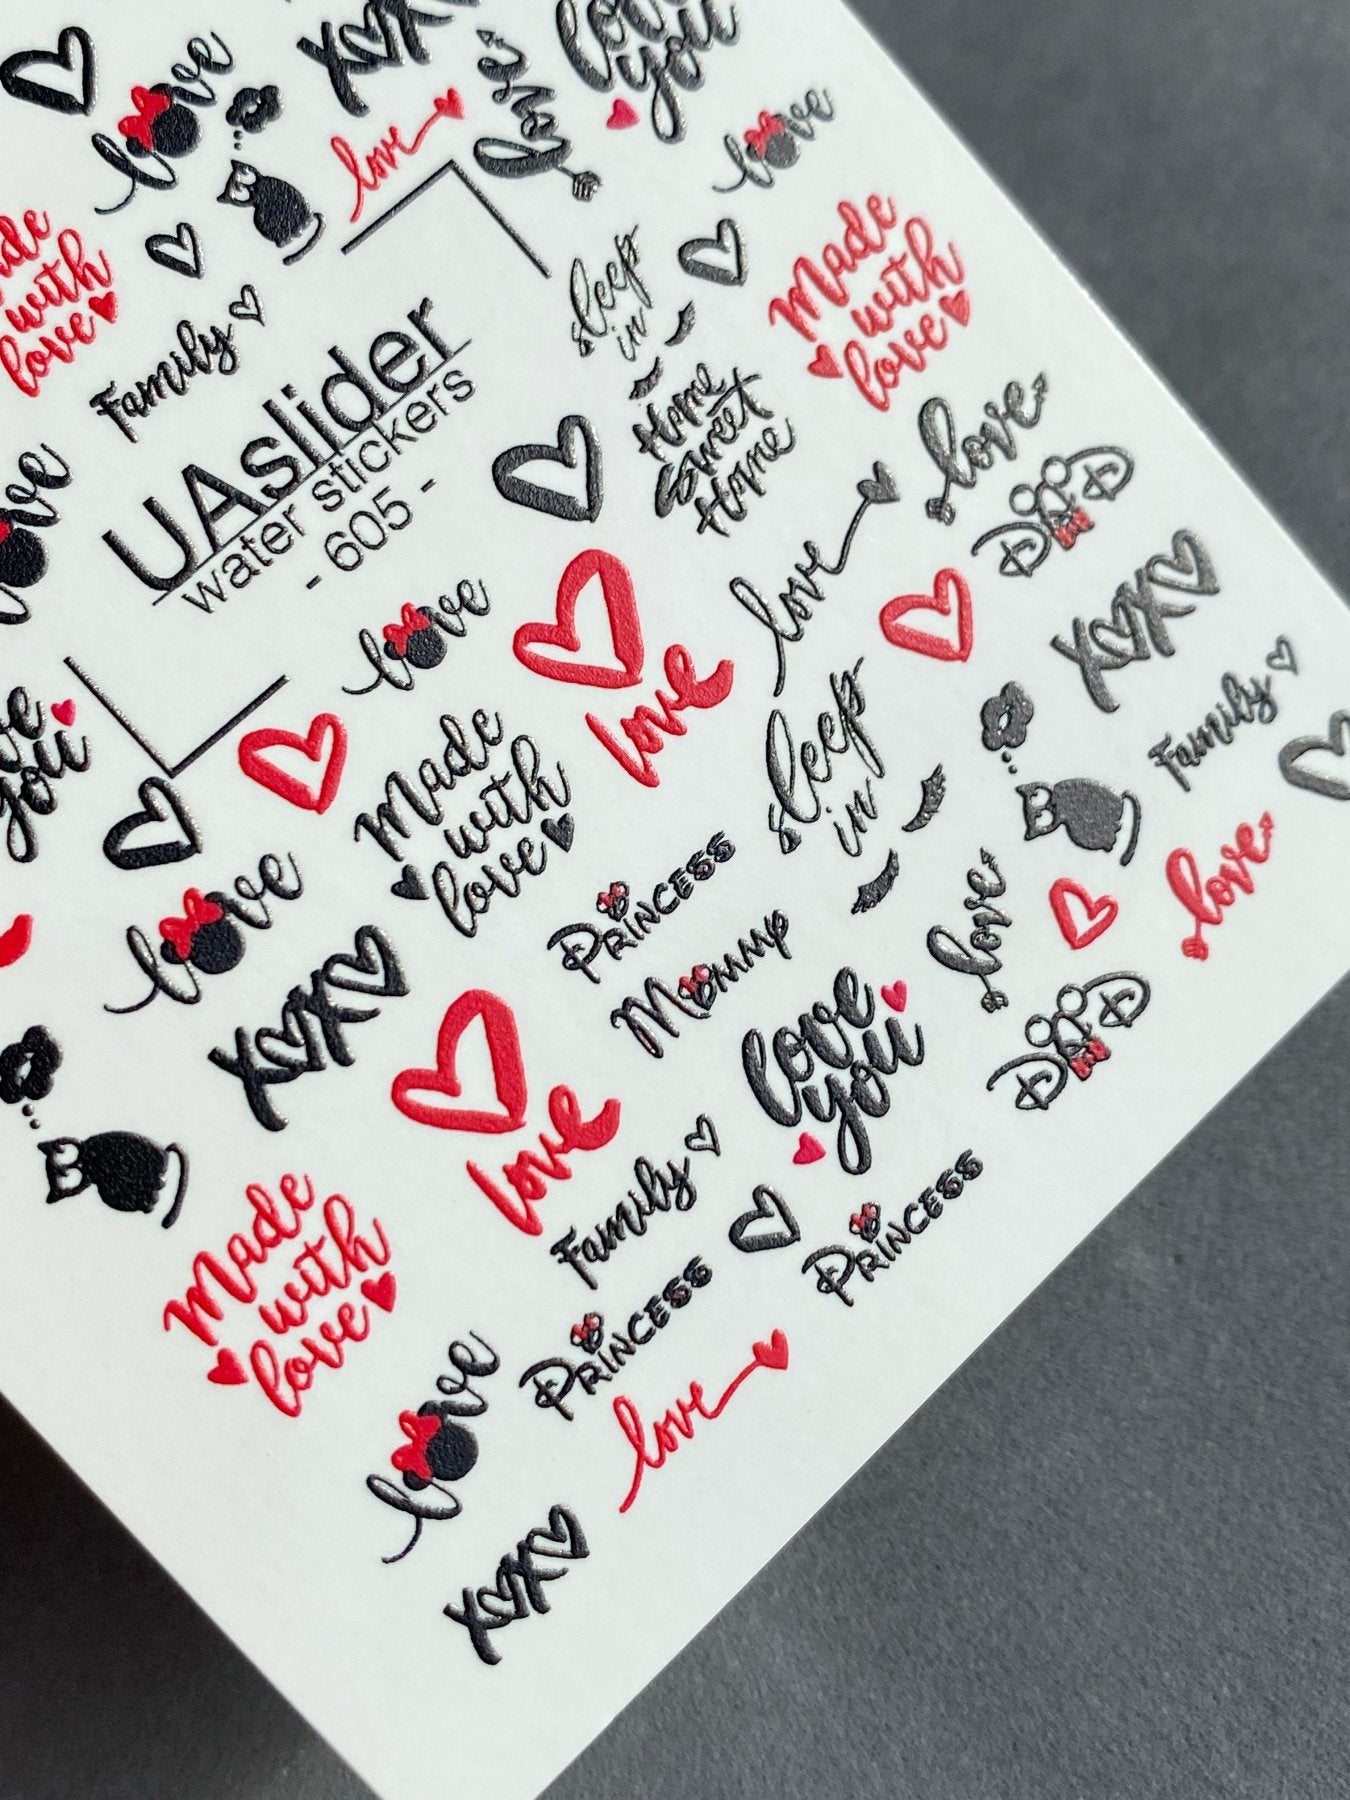 love
XOXO
love
love
love
you
love
Made
with
love
Family
sleep
in
Home
Sweet
Home
Made
with
love
UAslider
water stickers
- 605 -
love
love
love
DAD
XOXO
Family
love
you
love
Made
with
love
love
sleep
in
love
love
love
XOXO
Princess
Mommy
love
you
DAD
love
Family
Made
with
love
Princess
Princess
love
love
XOXO